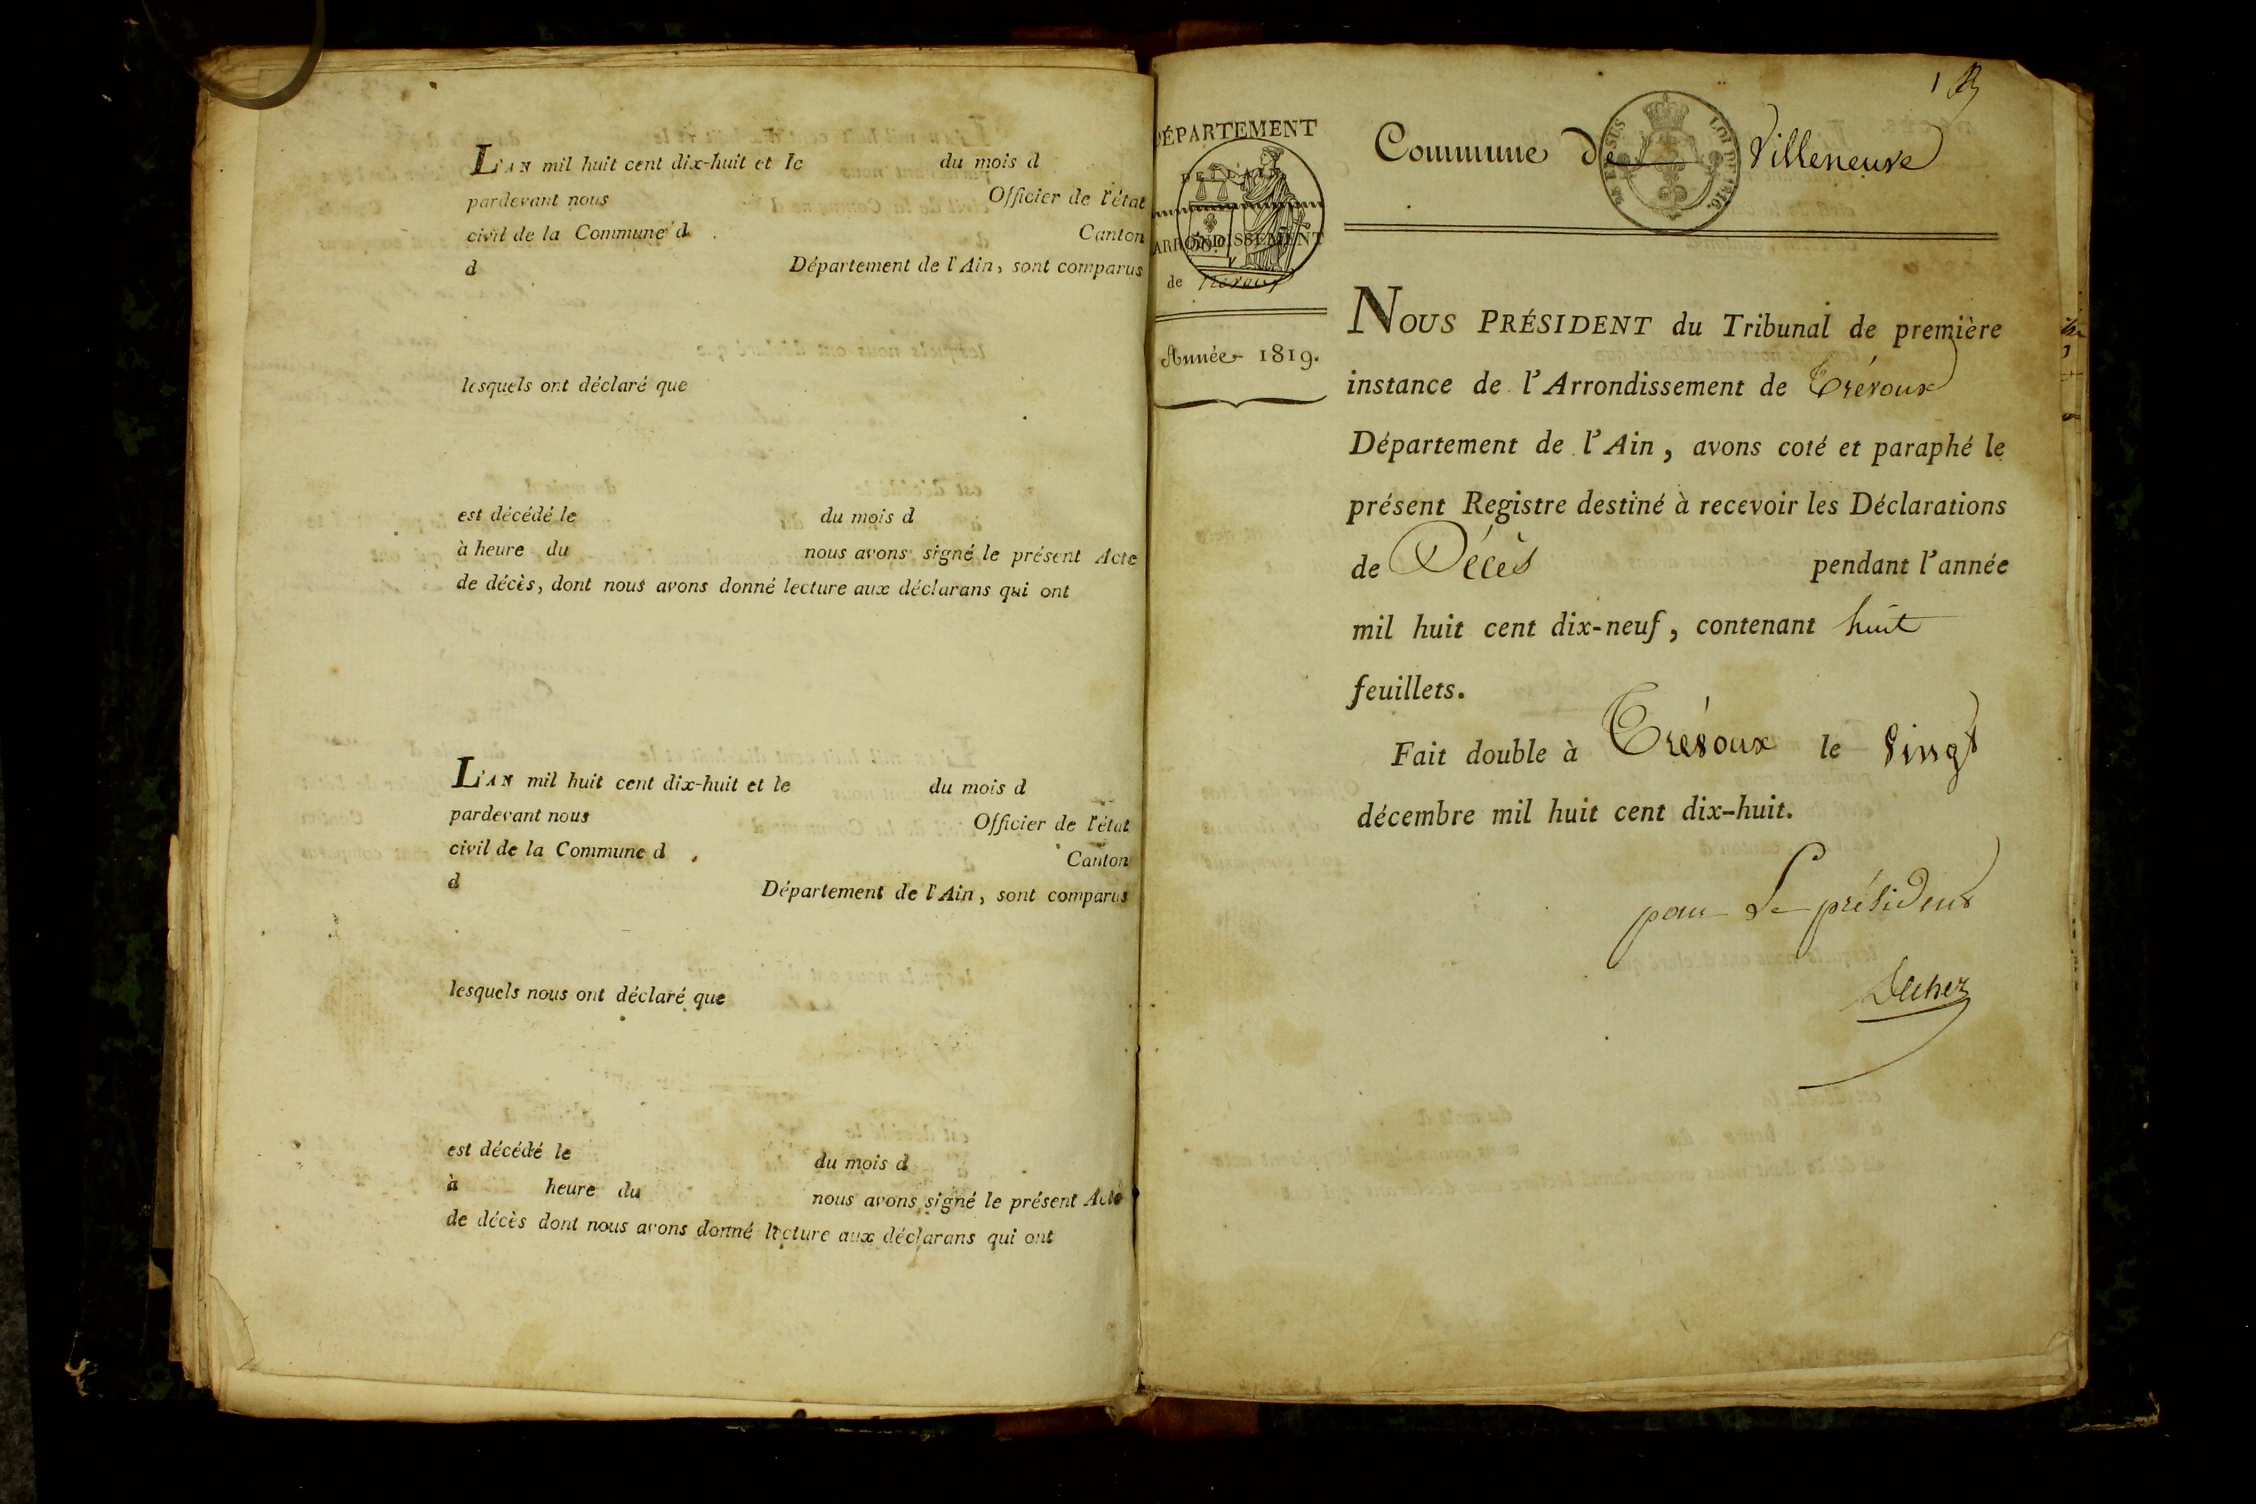 L'AN mil huit cent dix-huit et le du mois d
pardevant nous Officier de l'état
civil de la Commune d Canton
d Département de l'Ain, sont comparus
lesquels ont déclaré que
est décédé le du mois d
à heure du nous avons signé le présent Acte
de décès, dont nous avons donné lecture aux déclarans qui ont
L'AN mil huit cent dix-huit et le du mois d
pardevant nous Officier de l'état
civil de la Commune d Canton
d Département de l'Ain, sont comparus
lesquels nous ont déclaré que
est décédé le du mois d
à heure du nous avons signé le présent Acte
de décès dont nous avons donné lecture aux déclarans qui ont
DÉPARTEMENT
ARRONDISSEMENT
de Trévoux
Année 1819.
1
Commune de Villeneuve
LOI DE 1816.
NOUS PRÉSIDENT du Tribunal de première
instance de l'Arrondissement de Trévoux
Département de l'Ain, avons coté et paraphé le
présent Registre destiné à recevoir les Déclarations
de Décès pendant l'année
mil huit cent dix-neuf, contenant huit
feuillets.
Fait double à Trévoux le vingt
décembre mil huit cent dix-huit.
pour Le président